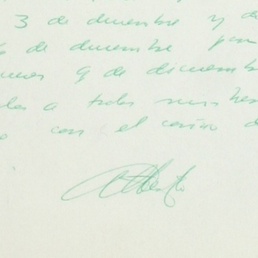 3 de diciembre y de
6 de diciembre por
jueves 9 de diciembre
a todos sus her
con el cariño de
Alberto